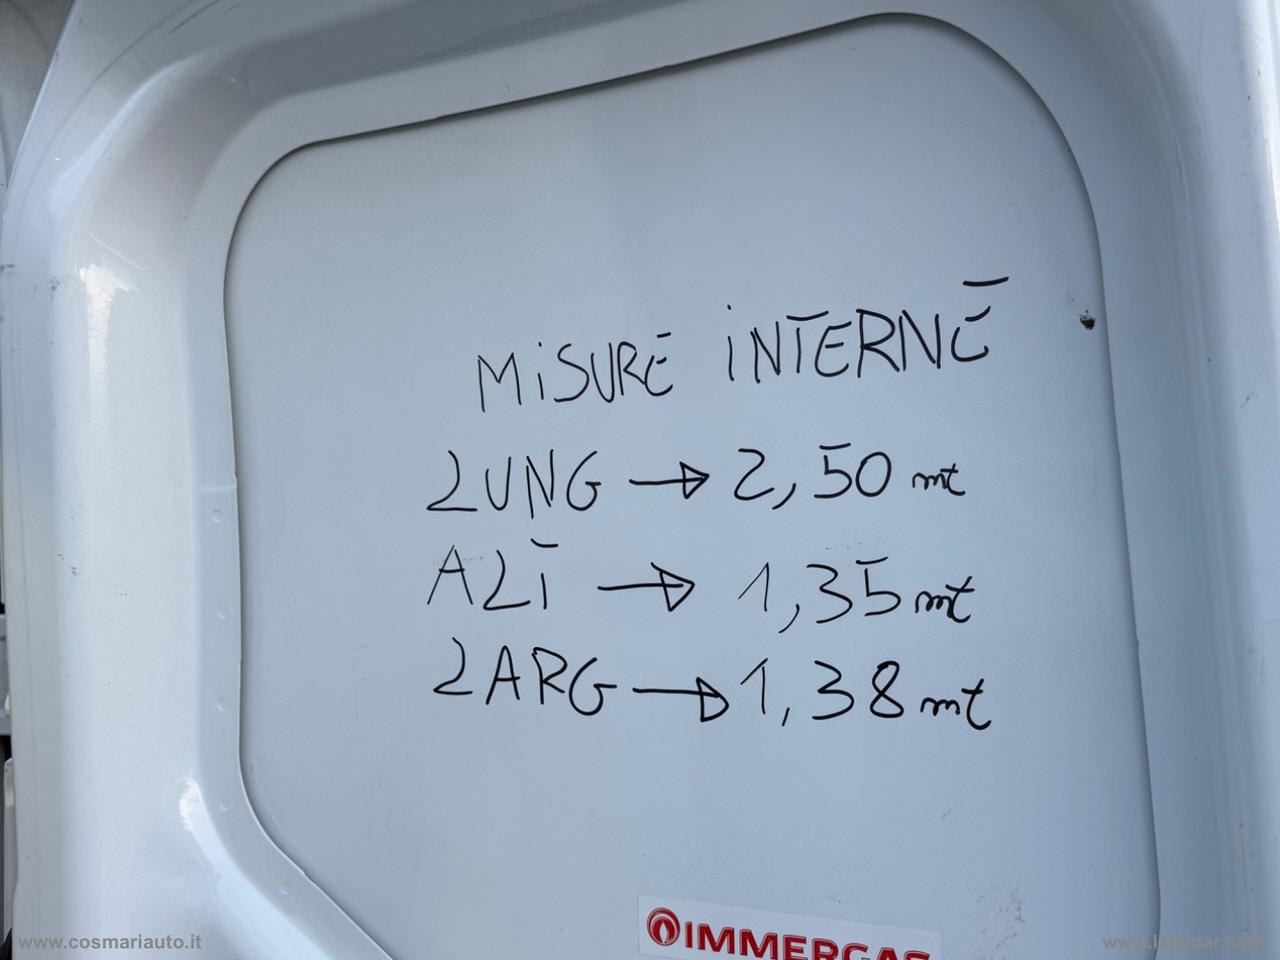 MiSURE iNTERNE
LUNG → 2,50 mt
ALT → 1,35 mt
LARG → 1,38 mt
IMMERGAS
www.cosmariauto.it